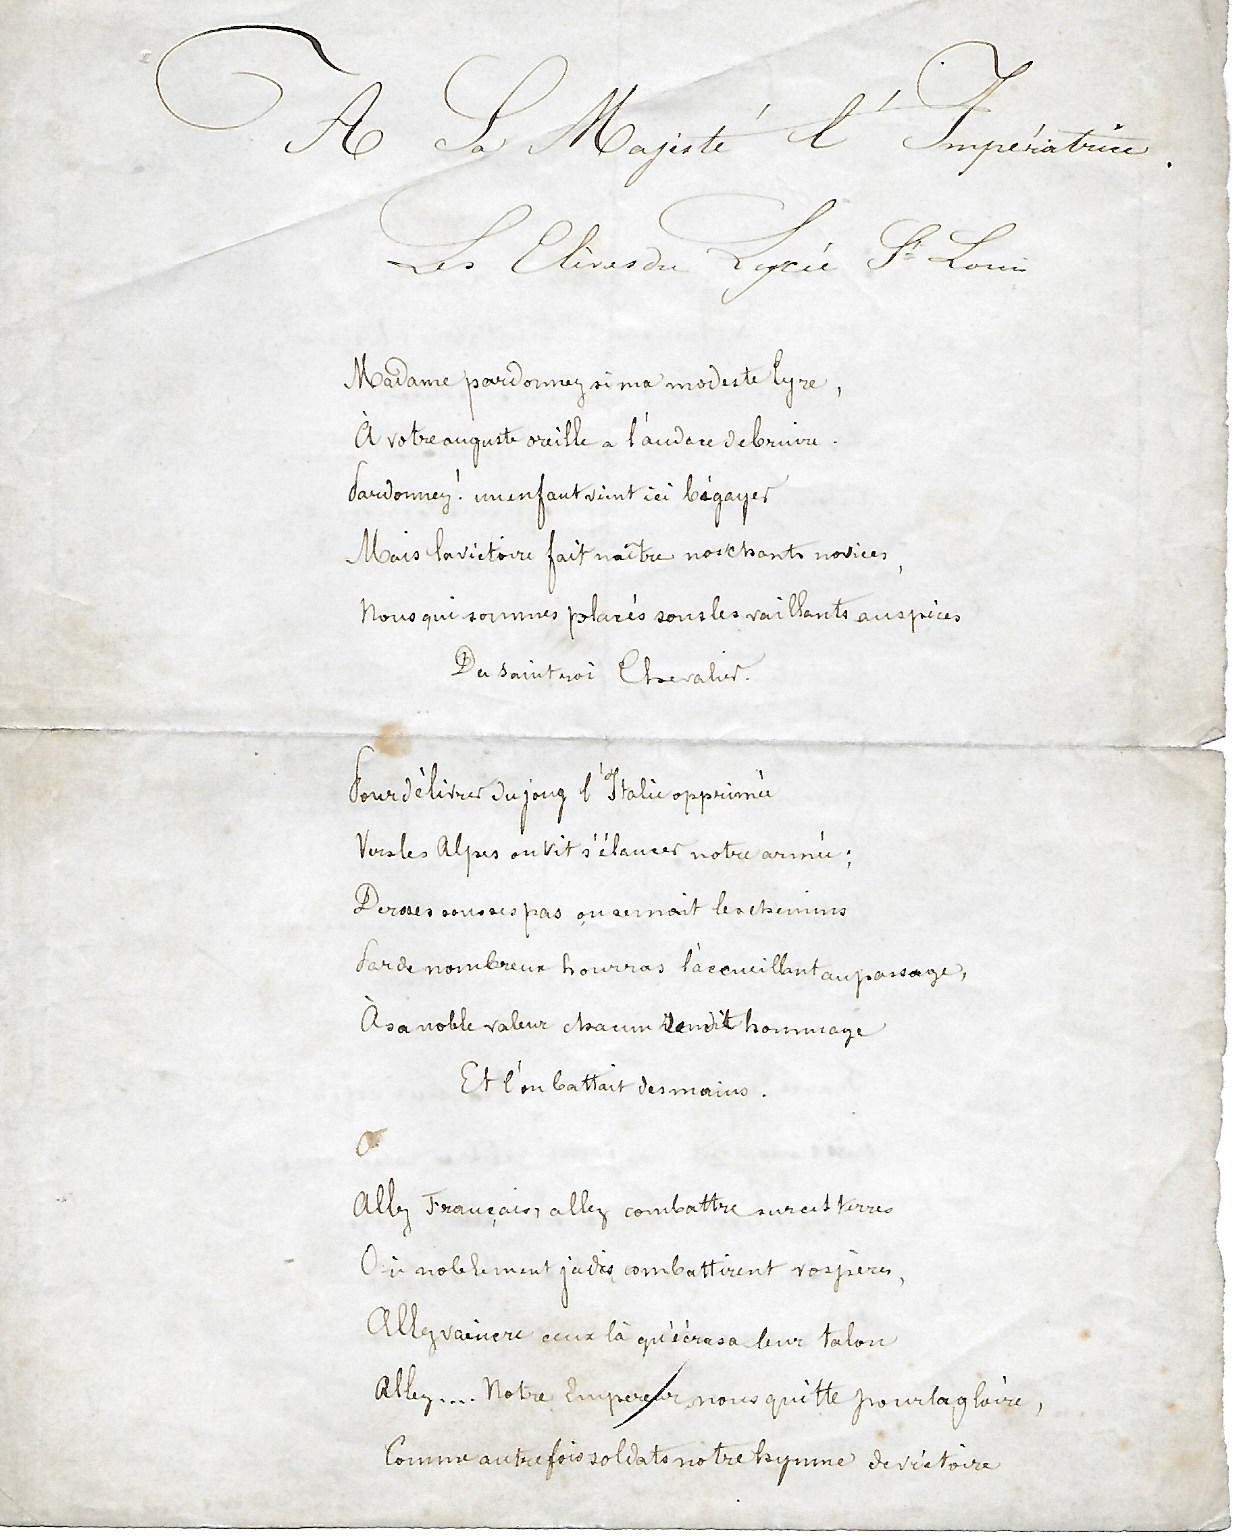 A Sa Majesté l'Impératrice.
Les Elèves du Lycée St Louis
Madame pardonnez si ma modeste lyre,
À votre auguste oreille a l'audace de bruire.
Pardonnez! un enfant vient ici bégayer
Mais la victoire fait naître nos chants novices,
Nous qui sommes placés sous les vaillants auspices
Du saint roi Chevalier.
Pour délivrer du joug l'Italie opprimée
Vers les Alpes on vit s'élancer notre armée;
De roses sous ses pas on semait les chemins
Par de nombreux hourras l'accueillant au passage,
À sa noble valeur chacun rendit hommage
Et l'on battait des mains.
Allez Français, allez combattre sur ces terres
Où noblement jadis combattirent vos pères,
Allez vaincre ceux là qu'écrasa leur talon
Allez.... Notre Empereur nous quitte pour la gloire,
Comme autrefois soldats notre hymne de victoire